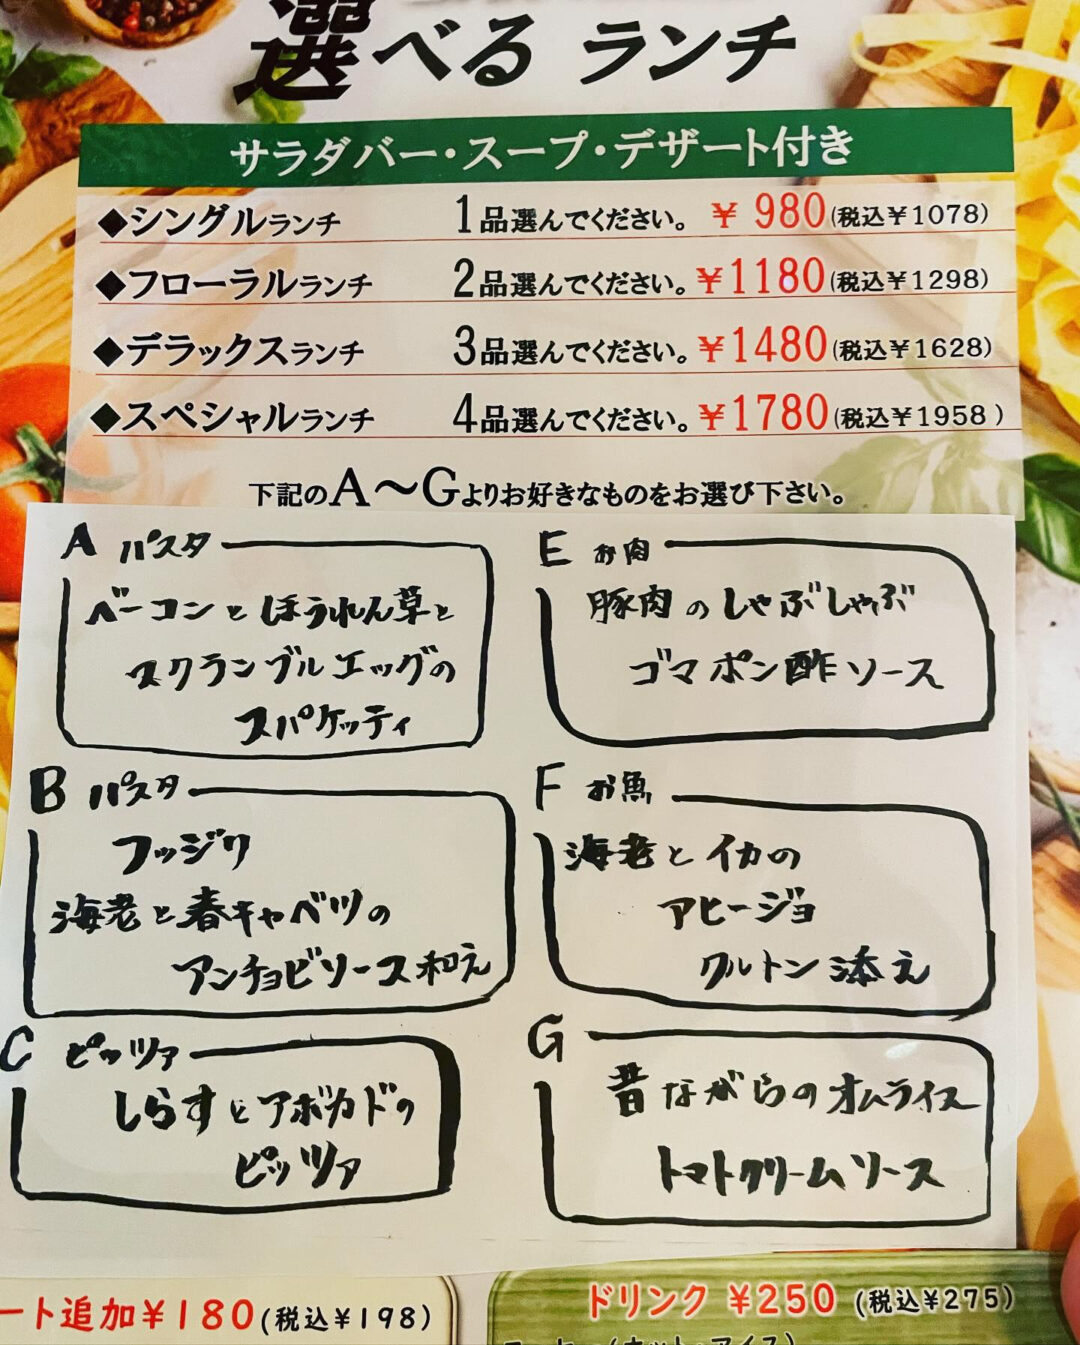 選べるランチ
サラダバー・スープ・デザート付き
◆シングルランチ 1品選んでください。 ¥980(税込¥1078)
◆フローラルランチ 2品選んでください。 ¥1180(税込¥1298)
◆デラックスランチ 3品選んでください。 ¥1480(税込¥1628)
◆スペシャルランチ 4品選んでください。 ¥1780(税込¥1958)
下記のA〜Gよりお好きなものをお選び下さい。
A パスタ
ベーコンとほうれん草と
スクランブルエッグの
スパゲッティ
B パスタ
フッジリ
海老と春キャベツの
アンチョビソース和え
C ピッツァ
しらすとアボカドの
ピッツァ
E お肉
豚肉のしゃぶしゃぶ
ゴマポン酢ソース
F お魚
海老とイカの
アヒージョ
クルトン添え
G
昔ながらのオムライス
トマトクリームソース
ート追加¥180(税込¥198)
ドリンク ¥250 (税込¥275)